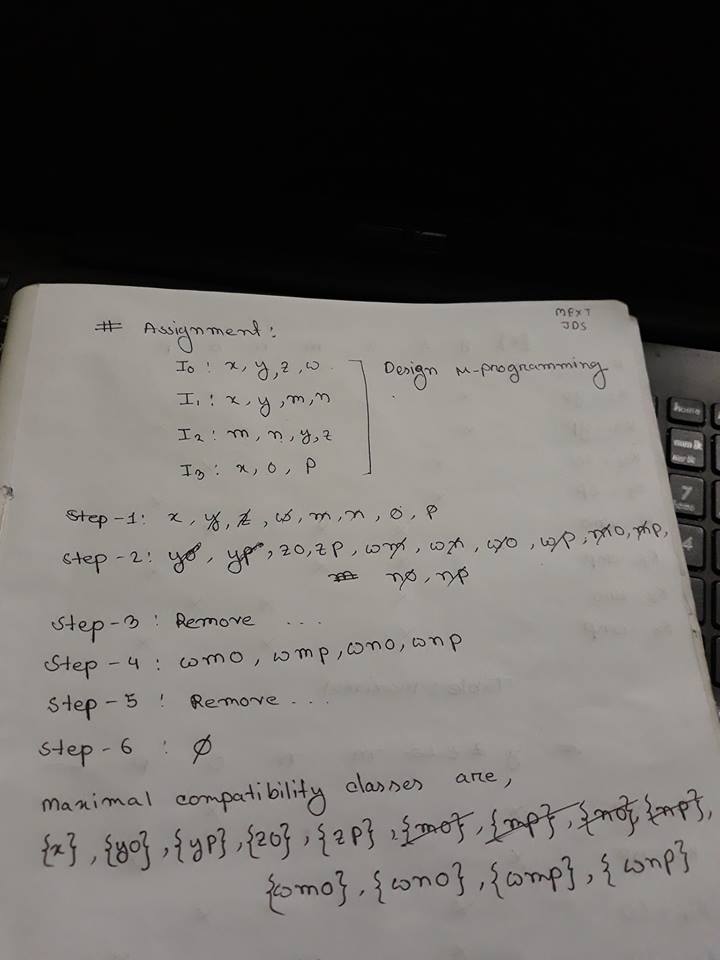 MPXT
JDS
# Assignment:
I0 : x, y, z, w.
I1 : x, y, m, n
I2 : m, n, y, z
I3 : x, o, p
Design μ-programming
Step-1: x, y, z, w, m, n, o, p
Step-2: yo, yp, zo, zp, wm, wn, wo, wp, mo, mp,
no, np
Step-3 : Remove ...
Step-4 : wmo, wmp, wno, wnp
Step-5 : Remove ...
Step-6 : ∅
maximal compatibility classes are,
{x}, {yo}, {yp}, {zo}, {zp}, {mo}, {mp}, {no}, {np},
{wmo}, {wno}, {wmp}, {wnp}